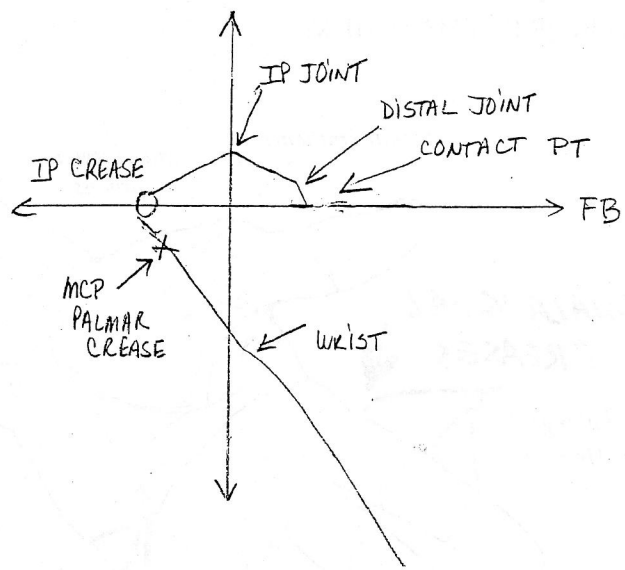 IP JOINT
DISTAL JOINT
CONTACT PT
IP CREASE
FB
MCP
PALMAR
CREASE
WRIST